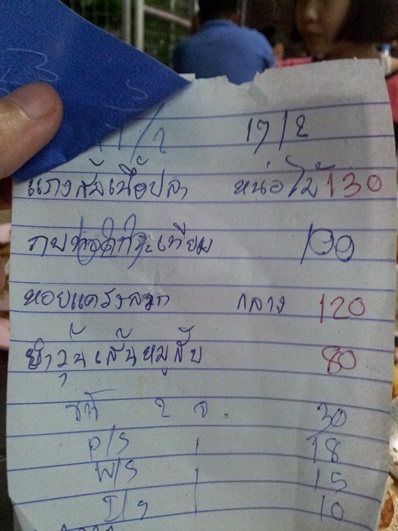 17/2
แกงส้มเนื้อปลา หน่อไม้ 130
กบทอดกระเทียม 100
หอยแครงลวก กลาง 120
ยำวุ้นเส้นหมูสับ 80
2 จ. 30
P/S 1 18
W/S 1 15
I/s 10